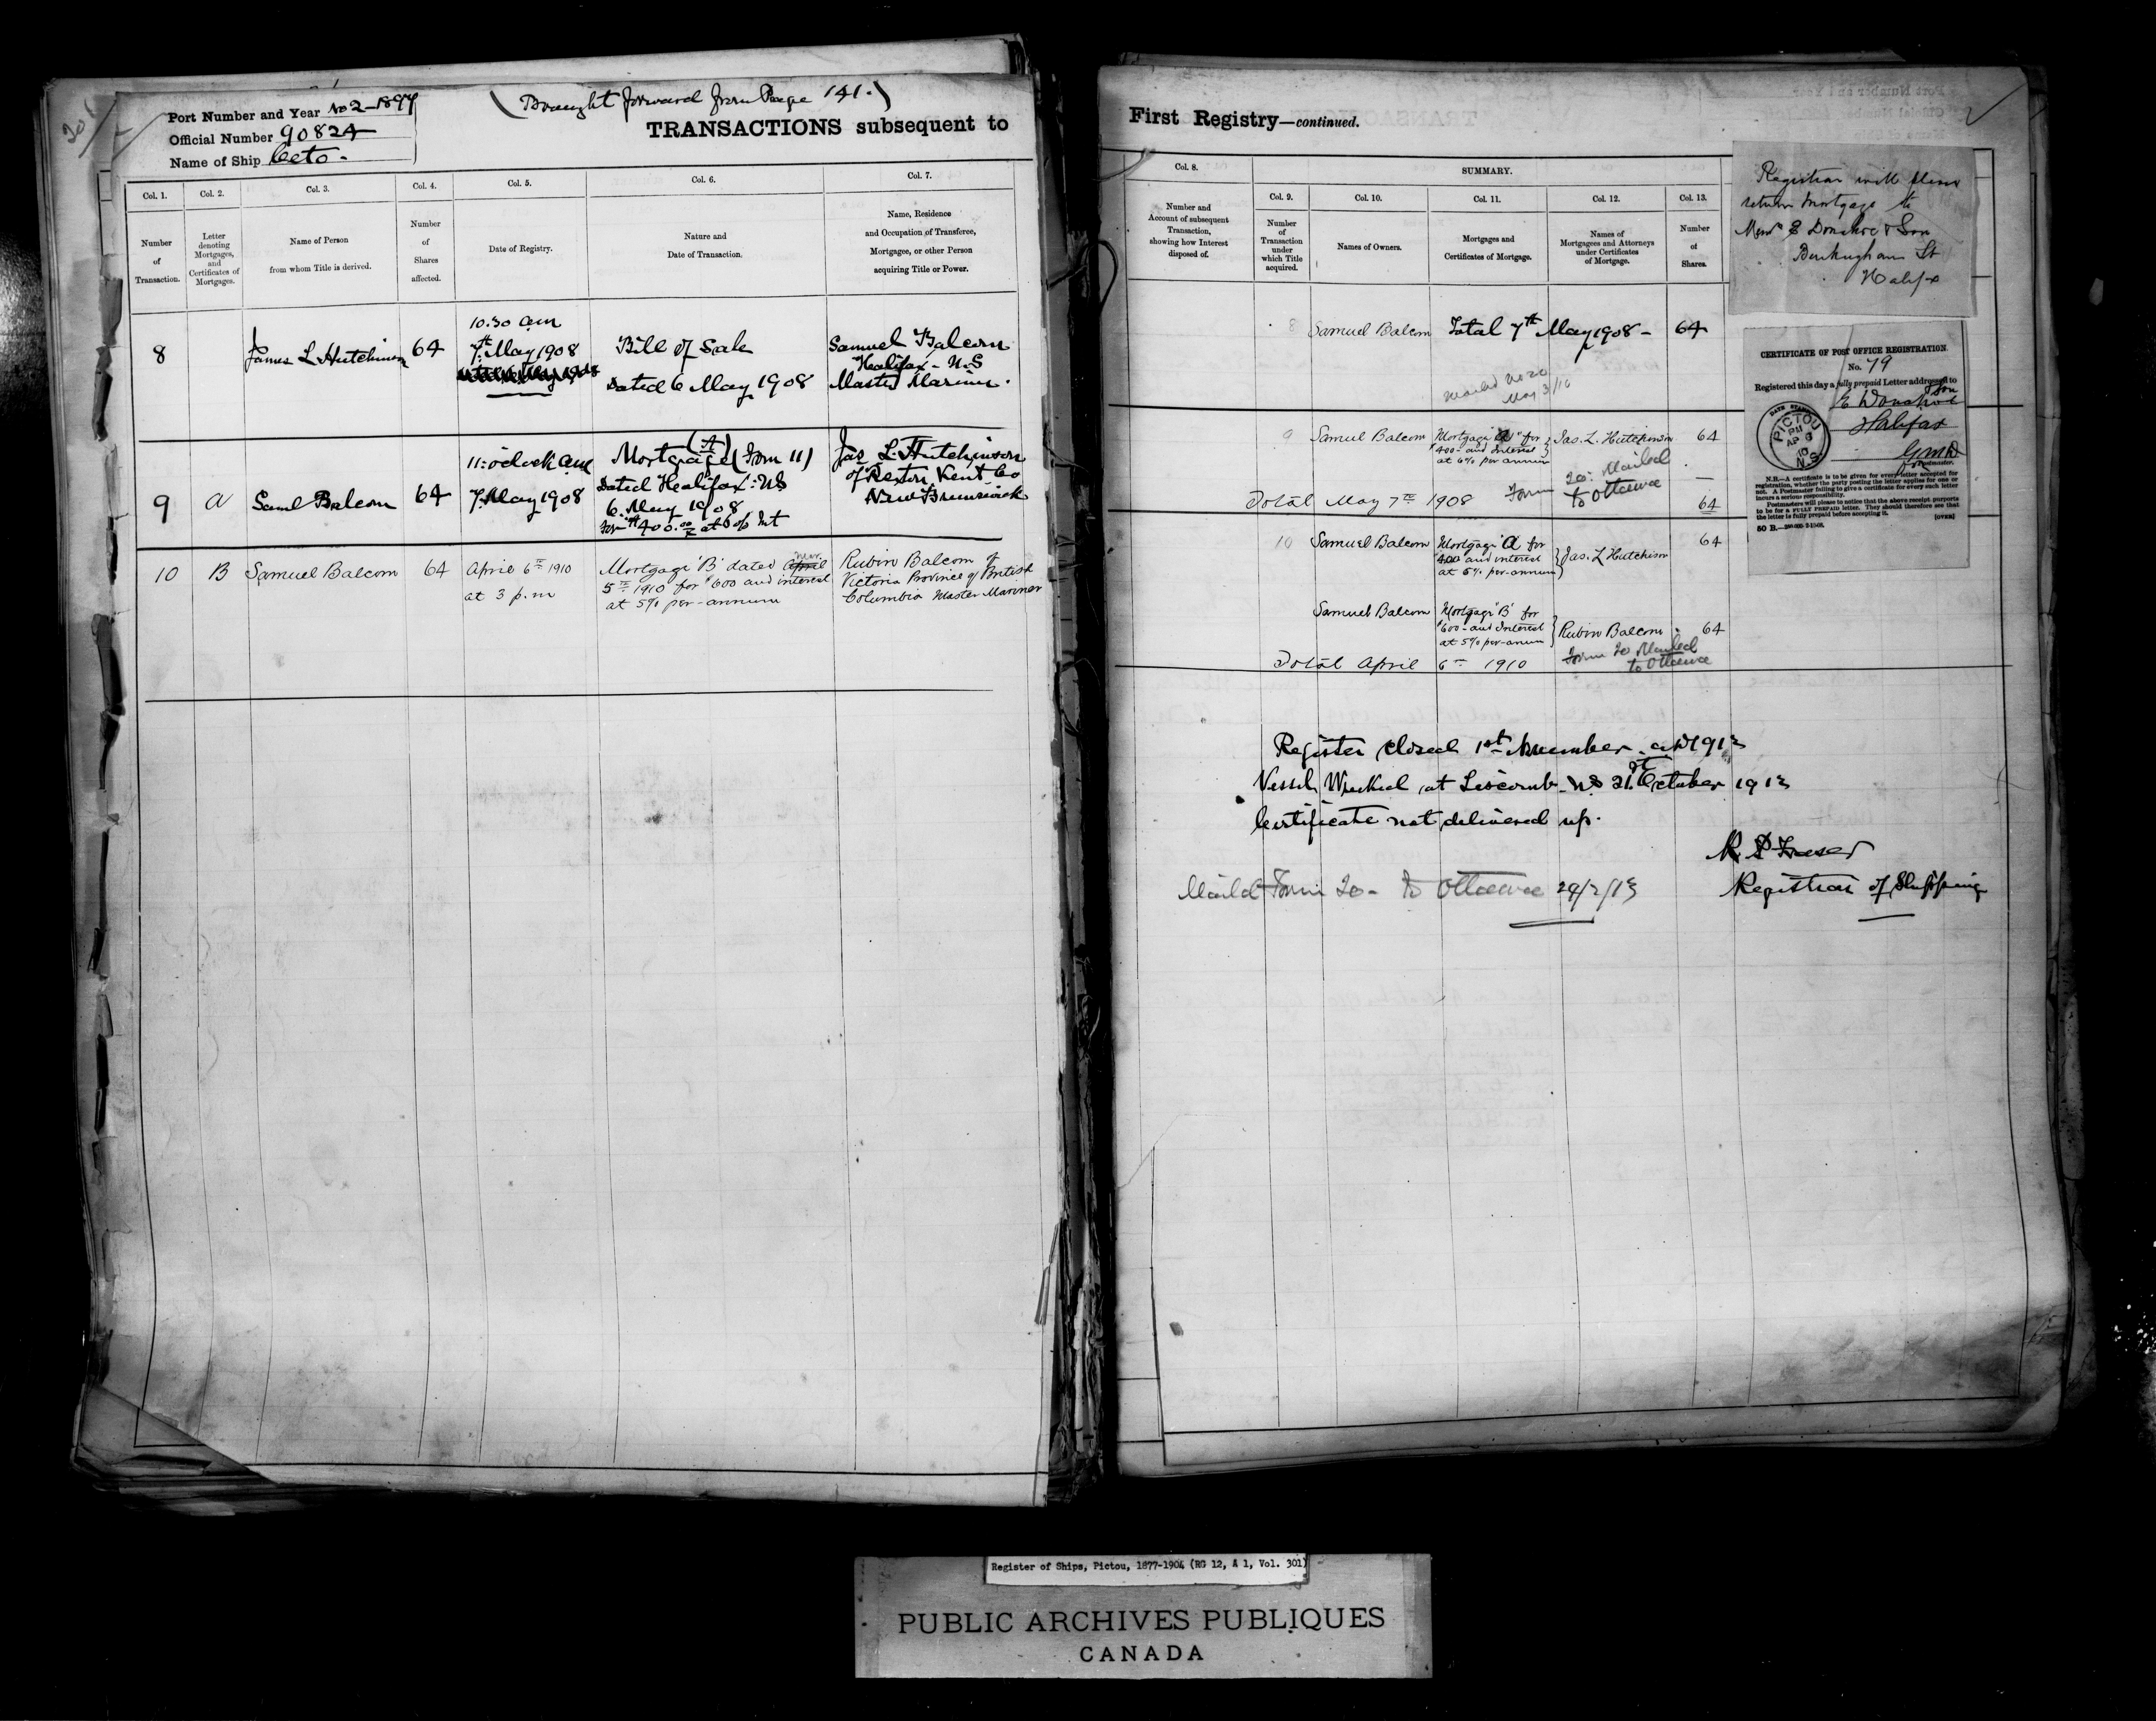 Port Number and Year No 2–1897
Official Number 90824
Name of Ship Ceto.
(Brought forward from Page 141.)
TRANSACTIONS subsequent to
Col. 1.
Col. 2.
Col. 3.
Col. 4.
Col. 5.
Col. 6.
Col. 7.
Number
of
Transaction.
Letter
denoting
Mortgages,
and
Certificates of
Mortgages.
Name of Person
from whom Title is derived.
Number
of
Shares
affected.
Date of Registry.
Nature and
Date of Transaction.
Name, Residence
and Occupation of Transferee,
Mortgagee, or other Person
acquiring Title or Power.
8
James L Hutchinson
64
10.30 am
7th May 1908
Bill of Sale
Dated 6 May 1908
Samuel Balcom
Halifax - N.S
Master Mariner.
9
A
Saml Balcom
64
11: oclock am
7. May 1908
(A)
Mortgage (Form 11)
Dated Halifax: NS
6. May 1908
for $400.00 at 6 o/o Int
Jas L. Hutchinson
of Rexton Kent Co
New Brunswick
10
B
Samuel Balcom
64
April 6th 1910
at 3 p.m
Mortgage 'B' dated April
5th 1910 for $600 and interest
at 5% per-annum
Rubin Balcom of
Victoria Province of British
Columbia Master Mariner
First Registry—continued.
Col. 8.
Number and
Account of subsequent
Transaction,
showing how Interest
disposed of.
SUMMARY.
Col. 9.
Col. 10.
Col. 11.
Col. 12.
Col. 13.
Number
of
Transaction
under
which Title
acquired.
Names of Owners.
Mortgages and
Certificates of Mortgage.
Names of
Mortgagees and Attorneys
under Certificates
of Mortgage.
Number
of
Shares.
8
Samuel Balcom
Total 7th May 1908 -
64
mailed no 20
May 3/10
9
Samuel Balcom
Mortgage "A" for
$400- and Interest
at 6% per annum
Jas. L. Hutchinson
64
Total May 7th 1908
Form 20: Mailed
to Ottawa
64
10
Samuel Balcom
Mortgage 'A' for
$400 and interest
at 6% per-annum
Jas. L Hutchison
64
Samuel Balcom
Mortgage 'B' for
$600- and Interest
at 5% per-anum
Rubin Balcom
64
Total April 6th 1910
Form 20 Mailed
to Ottawa
Registrar will please
return mortgage to
Messrs E Donahoe & Son
Buckingham St
Halifax
CERTIFICATE OF POST OFFICE REGISTRATION.
No. 79
Registered this day a fully prepaid Letter addressed to
E Donahoe & Son
Halifax
DATE STAMP
PICTOU
PM
AP 6
10
N.S.
Postmaster.
N.B.—A certificate is to be given for every letter accepted for
registration, whether the party posting the letter applies for one or
not. A Postmaster failing to give a certificate for every such letter
incurs a serious responsibility.
Postmasters will please to notice that the above receipt purports
to be for a FULLY PREPAID letter. They should therefore see that
the letter is fully prepaid before accepting it.
[OVER]
50 B.
Register closed 1st November. 1913
Vessel Wrecked at Liscomb. NS 21st October 1913
Certificate not delivered up.
Registrar of Shipping
Mailed Form 20- to Ottawa
Register of Ships, Pictou, 1877-1904 (RG 12, A 1, Vol. 301)
PUBLIC ARCHIVES PUBLIQUES
CANADA